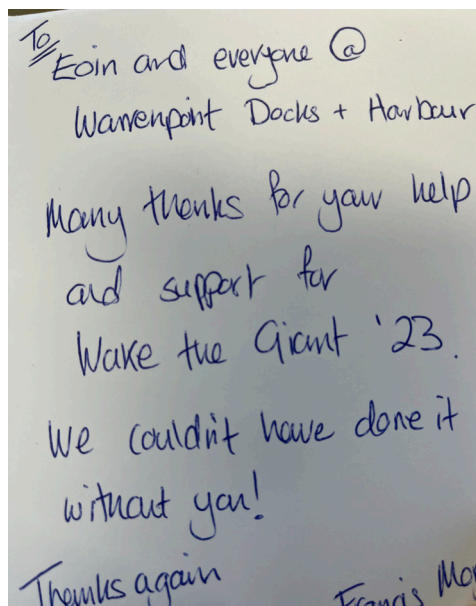 To
Eoin and everyone @
Warrenpoint Docks + Harbour
Many thanks for your help
and support for
Wake the Giant '23.
We couldn't have done it
without you!
Thanks again
Francis